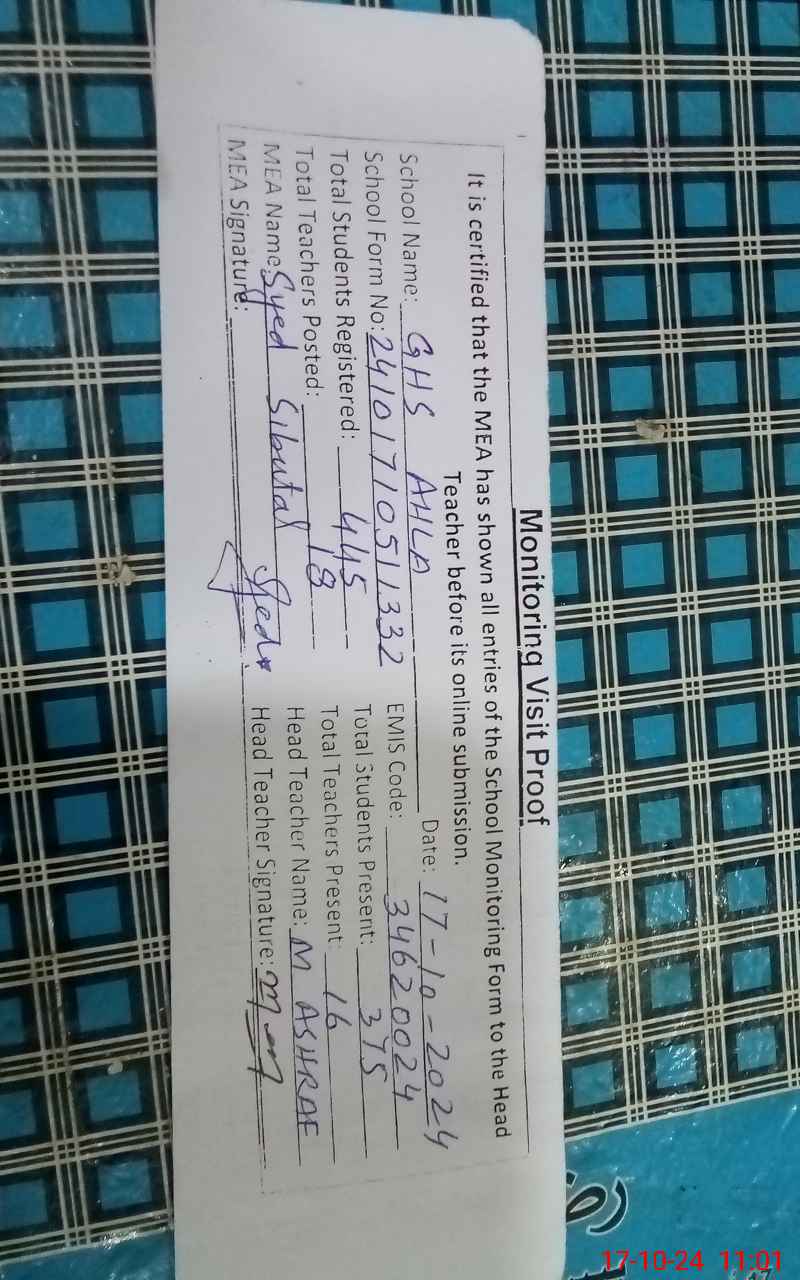 Monitoring Visit Proof
It is certified that the MEA has shown all entries of the School Monitoring Form to the Head
Teacher before its online submission.
School Name: GHS AHLA Date: 17-10-2024
School Form No: 24101710511332 EMIS Code: 34620024
Total Students Registered: 445 Total Students Present: 375
Total Teachers Posted: 18 Total Teachers Present: 16
MEA Name: Syed Sibutal Head Teacher Name: M ASHRAF
MEA Signature: Head Teacher Signature:
17-10-24 11:01